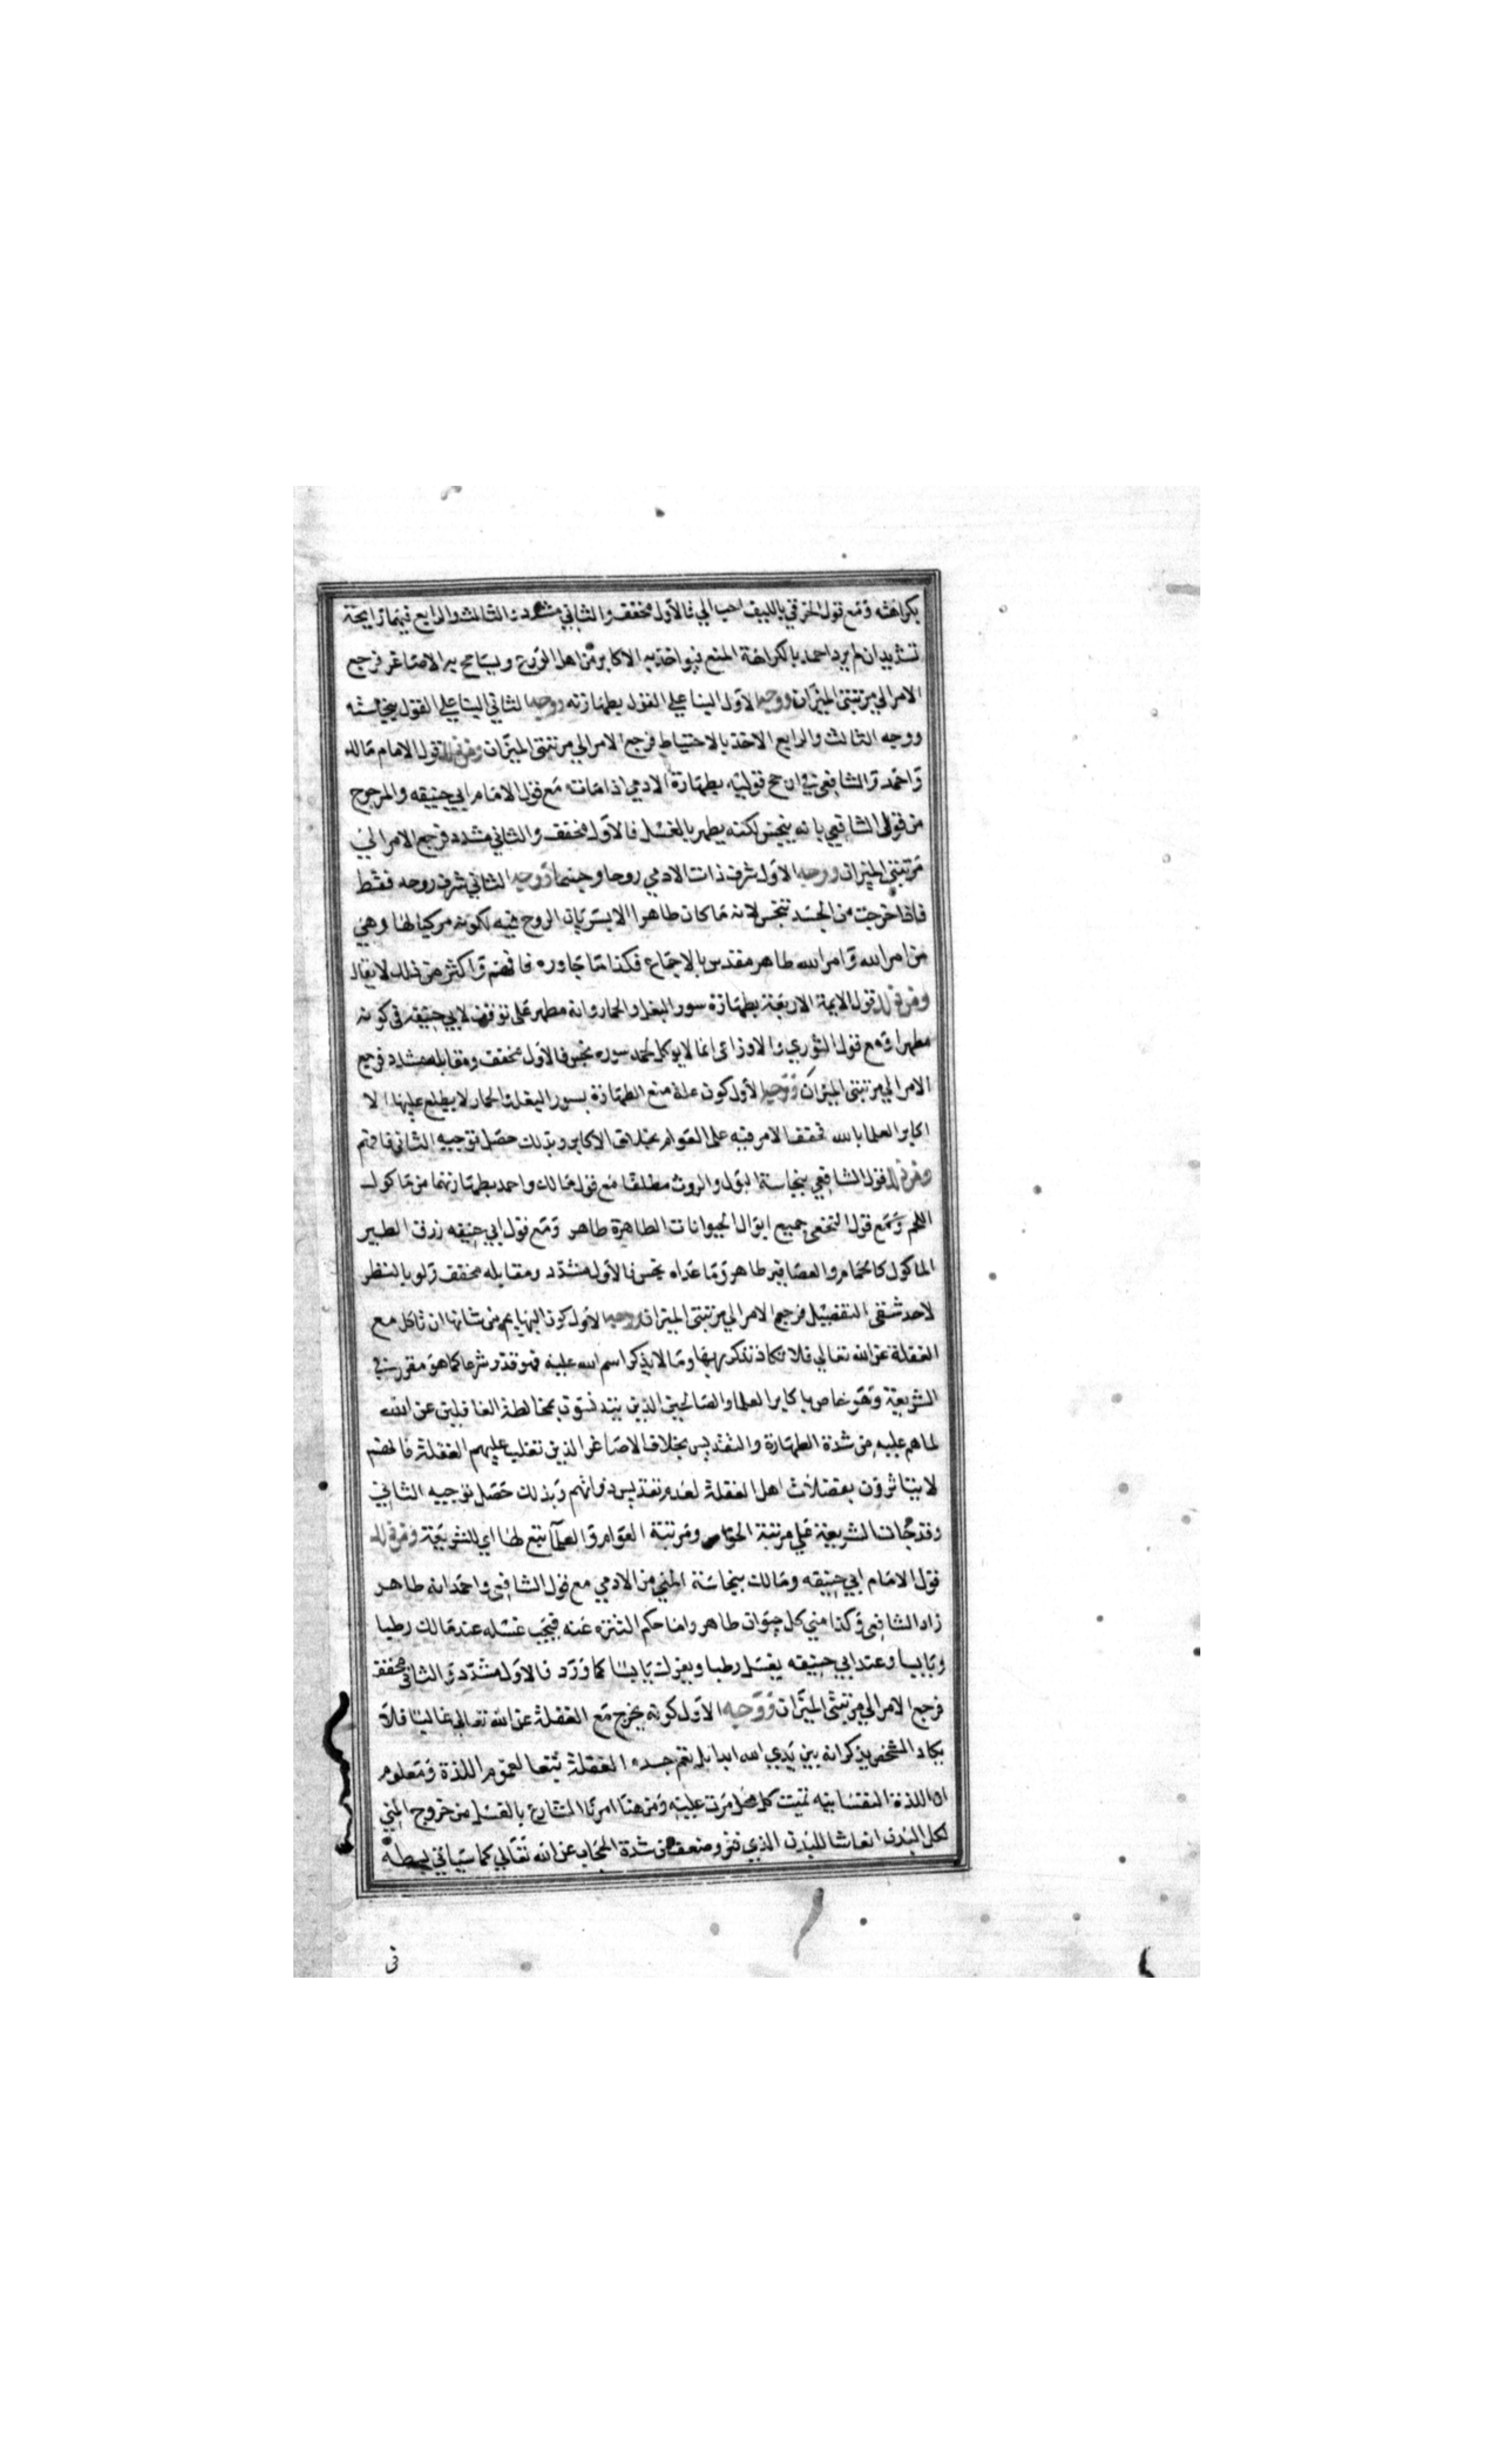 بكراهته ومع قول الخرقي بالليف احب الي فالاول مخفف والثاني مشدد والثالث والرابع فيهما رايحة
تشديد ان لم يرد احمد بالكراهة المنع فيواخذ به الاكابر من اهل الورع ويسامح به الاصاغر فرجع
الامر الي مرتبتي الميزان ووجه الاول البنا علي القول بطهارته ووجه الثاني البنا علي القول بنجاسته
ووجه الثالث والرابع الاخذ بالاحتياط فرجع الامر الي مرتبتي الميزان ومن ذلك قول الامام مالك
واحمد والشافعي في ارجح قوليه بطهارة الادمي اذا مات مع قول الامام ابي حنيفه والمرجوح
من قولي الشافعي بانه ينجس لكنه يطهر بالغسل فالاول مخفف والثاني مشدد فرجع الامر الي
مرتبتي الميزان ووجه الاول شرف ذات الادمي روحا وجسما ووجه الثاني شرف روحه فقط
فاذا خرجت من الجسد تنجس لانه ما كان طاهرا الا بسريان الروح فيه لكونه مركبا لها وهي
من امر الله وامر الله طاهر مقدس بالاجماع فكذا ما جاوره فافهم واكثر من ذلك لا يقال
ومن ذلك قول الايمة الاربعة بطهارة سور البغل والحمار وانه مطهر على توقف لابي حنيفه في كونه
مطهرا ومع قول الثوري والاوزاعي ان ما لا يوكل لحمه سوره نجس فالاول مخفف ومقابله مشدد فرجع
الامر الي مرتبتي الميزان ووجه الاول كون علة منع الطهارة بسور البغل والحمار لا يطلع عليها الا
اكابر العلما بالله فخفف الامر فيه على العوام بخلاف الاكابر وبذلك حصل توجيه الثاني فافهم
ومن ذلك قول الشافعي بنجاسة البول والروث مطلقا مع قول مالك واحمد بطهارتهما من ماكول
اللحم ومع قول النخعي جميع ابوال الحيوانات الطاهرة طاهر ومع قول ابي حنيفه زرق الطير
الماكول كالحمام والعصافير طاهر وما عداه نجس فالاول مشدد ومقابله مخفف ولو بالنظر
لاحد شقي التفصيل فرجع الامر الي مرتبتي الميزان ووجه الاول كون البهايم من شانها ان تاكل مع
الغفلة عن الله تعالي فلا تكاد تذكر ربها وما لا يذكر اسم الله عليه فهو قذر شرعا كما هو مقرر في
الشريعة وهو خاص باكابر العلما والصالحين الذين يتدنسون بمخالطة الغافلين عن الله
لما هم عليه من شدة الطهارة والتقديس بخلاف الاصاغر الذين تغلب عليهم الغفلة فانهم
لا يتاثرون بفضلات اهل الغفلة لعدم تقديس ذواتهم وبذلك حصل توجيه الثاني
وقد جات الشريعة علي مرتبة الخواص ومرتبة العوام والعلما تبع لها اي للشريعة ومن ذلك
قول الامام ابي حنيفه ومالك بنجاسة المني من الادمي مع قول الشافعي واحمد انه طاهر
زاد الشافعي وكذا مني كل حيوان طاهر واما حكم التنزه عنه فيجب غسله عند مالك رطبا
ويابسا وعند ابي حنيفه يغسل رطبا ويفرك يابسا كما ورد فالاول مشدد والثاني مخفف
فرجع الامر الي مرتبتي الميزان ووجه الاول كونه يخرج مع الغفلة عن الله تعالي غالبا فلا
يكاد الشخص يذكر انه بين يدي الله ابدا بل تعم جسده الغفلة تبعا لعموم اللذة ومعلوم
ان اللذة النفسانيه تميت كل محل مرت عليه ومن هنا امرنا الشارع بالغسل من خروج المني
لكل البدن انعاشا للبدن الذي فتر وضعف من شدة الحجاب عن الله تعالي كما سياتي بسطه
في